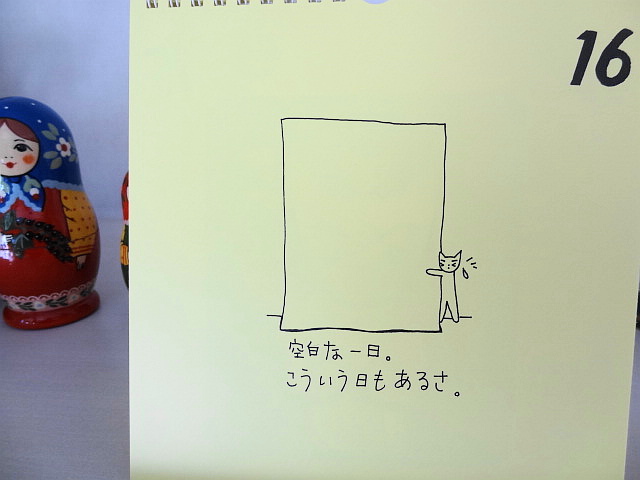 16
空白な一日。
こういう日もあるさ。